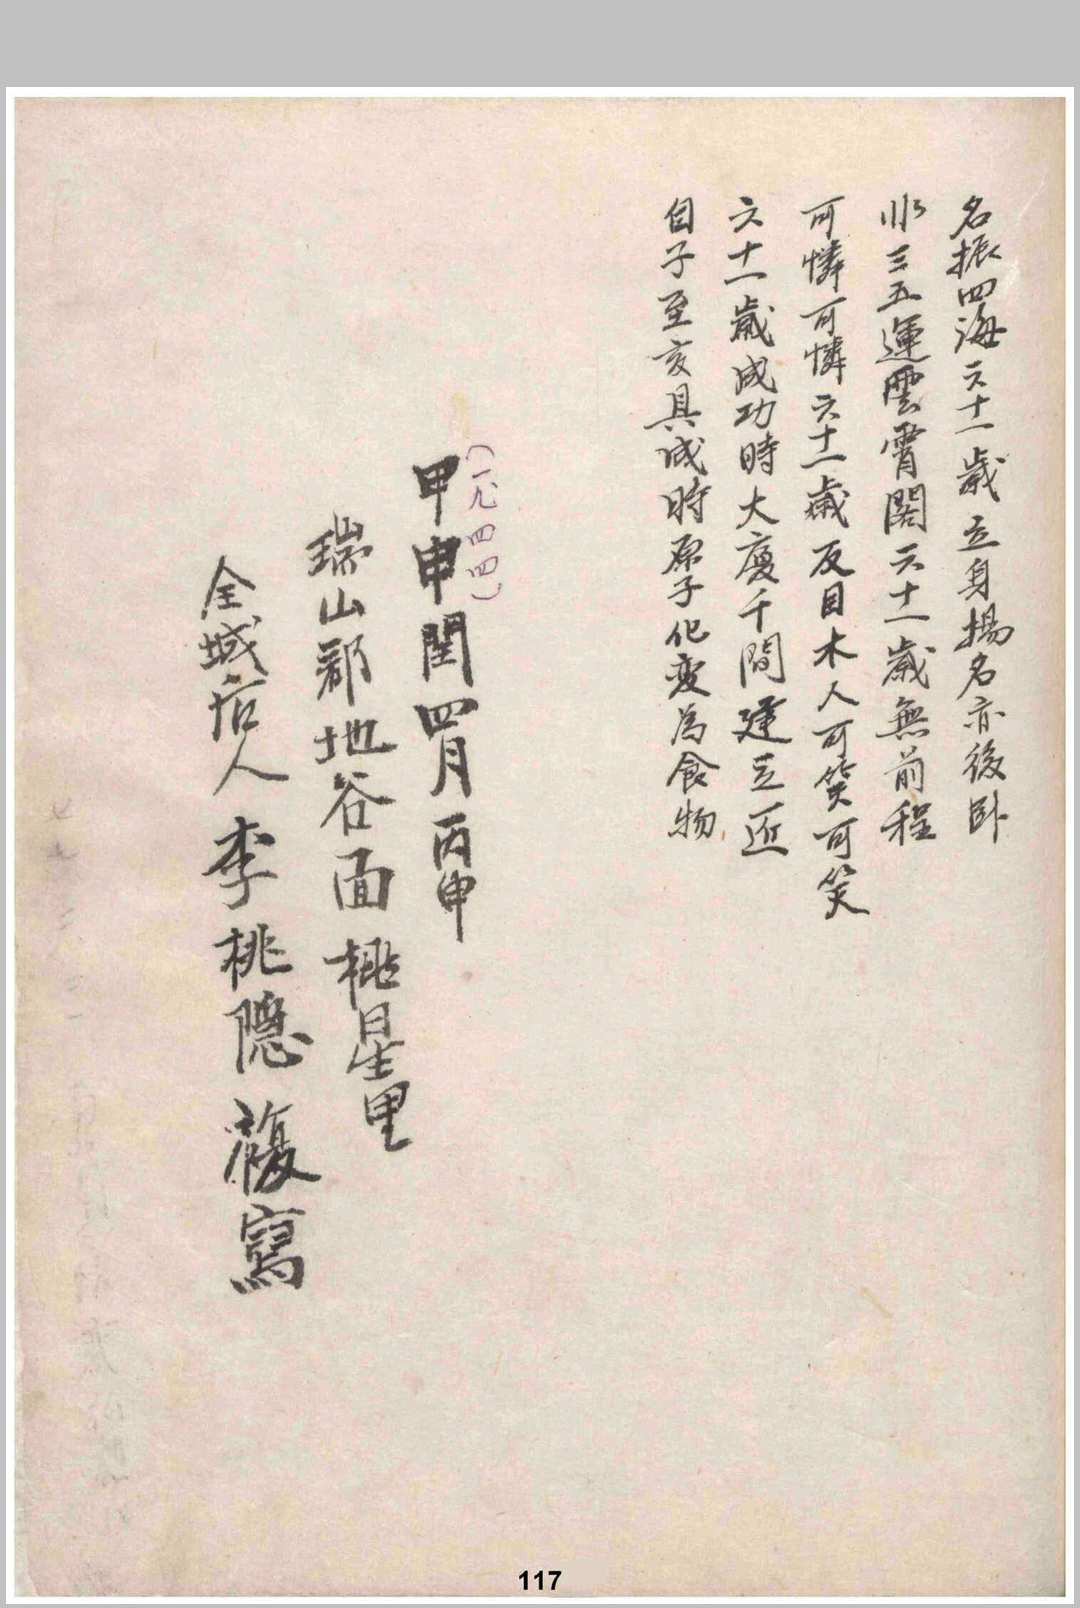 名振四海六十一歲立身揚名亦後臥
氺三五運雲霄閣六十一歲無前程
可憐可憐六十一歲反目木人可笑可笑
六十一歲成功時大廈千間建立匠
自子至亥具成時原子化变為食物
(一九四四)
甲申閏四月丙申
瑞山郡地谷面桃星里
全城后人 李桃隱 複寫
117